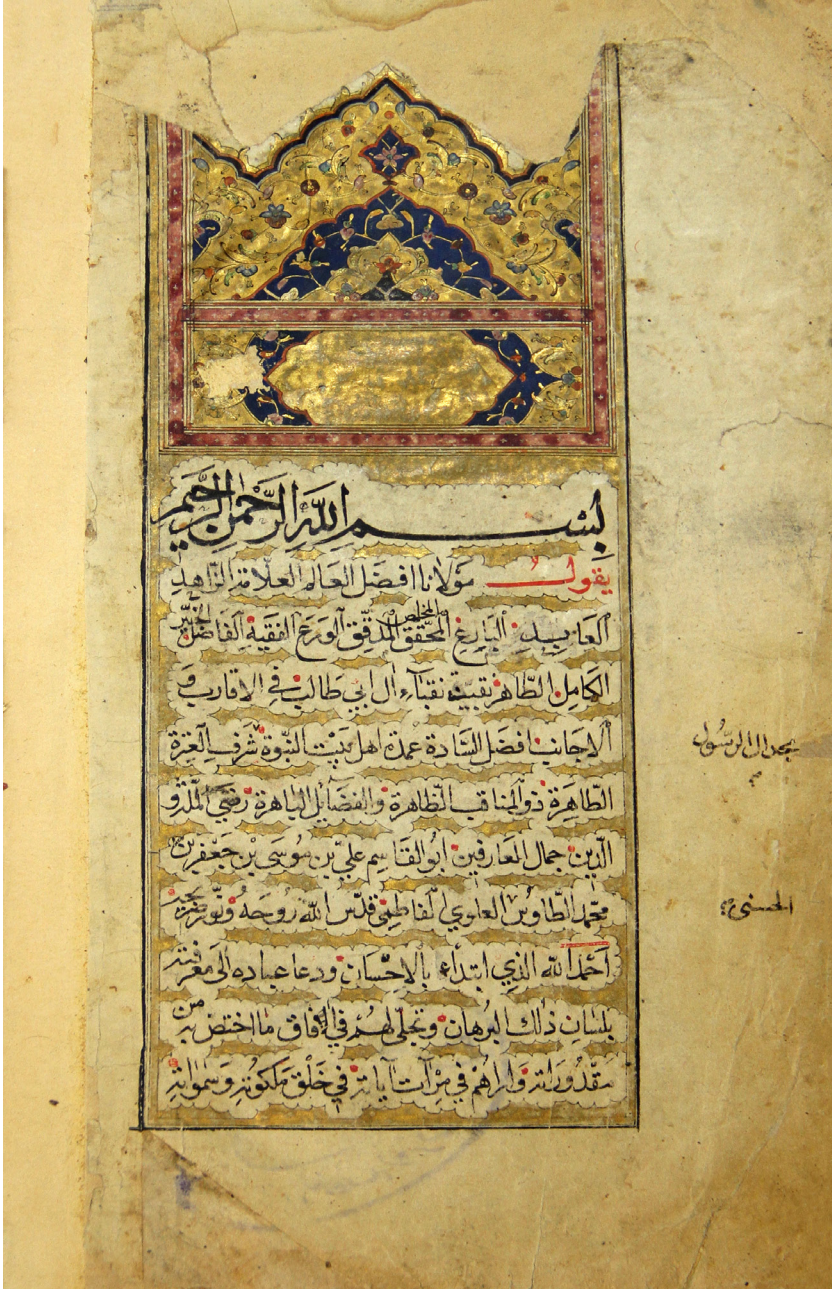 بِسْمِ اللّٰهِ الرَّحْمٰنِ الرَّحِيمِ
يقول مولانا افضل العالم العلامة الزاهد
العابد البارع المخلص المحقق المدقق الورع الفقيه الفاضل الخبير
الكامل الطاهر نقيب نقباء ال ابي طالب في الاقارب و
الاجانب افضل السادة عمدة اهل بيت النبوة شرف العترة
مجد ال الرسول
الطاهرة ذو المناقب الظاهرة والفضايل الباهرة رضي الملة و
الدين جمال العارفين ابو القاسم علي بن موسى بن جعفر بن
محمد الطاوس العلوي الفاطمي قدس الله روحه ونور ضريحه
الحسني
احمد الله الذي ابتداء بالاحسان ودعا عباده الى معرفته
بلسان ذلك البرهان وتجلى لهم في الافاق ما اختص به من
مقدوراته واراهم في مرآت آياته في خلق ملكوته وسمواته